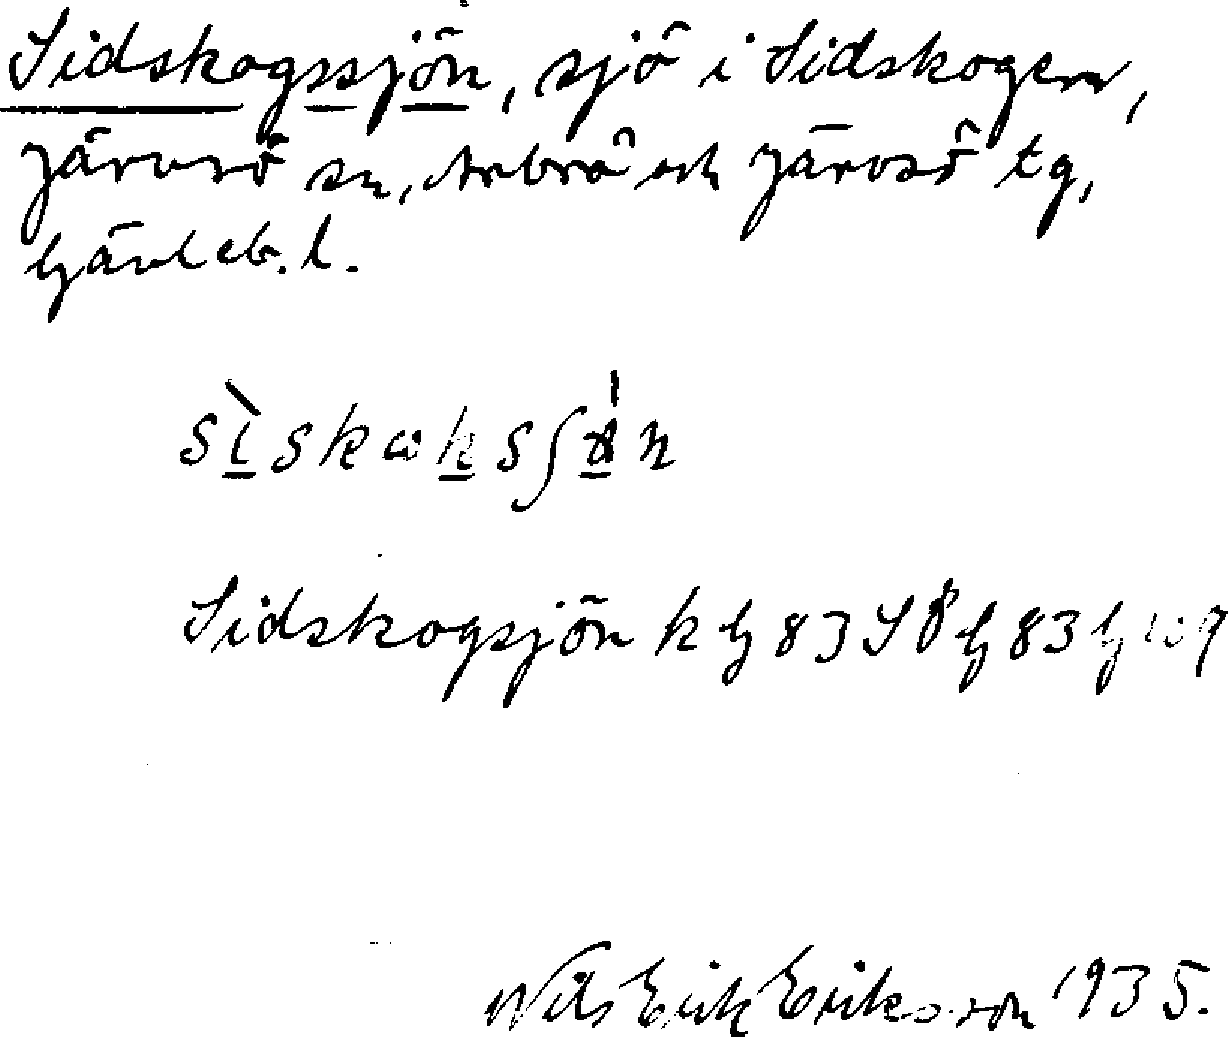 Sidskogssjön, sjö i Sidskogen,
Järvsö sn, Arbrå och Järvsö tg,
Gävleb. l.
Sidskogsjön k G 83 S G 83 G
Nils Erik Eriksson 1935.